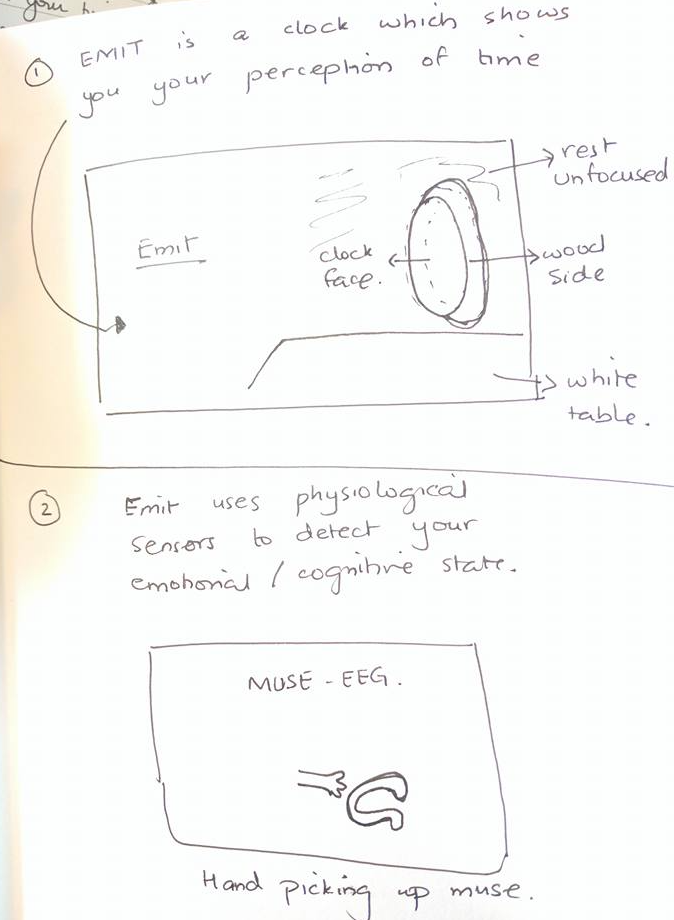 your h
① EMIT is a clock which shows
you your perception of time
rest
unfocused
Emit
clock
face.
wood
side
white
table.
② Emit uses physiological
sensors to detect your
emotional / cognitive state.
MUSE - EEG.
Hand picking up muse.